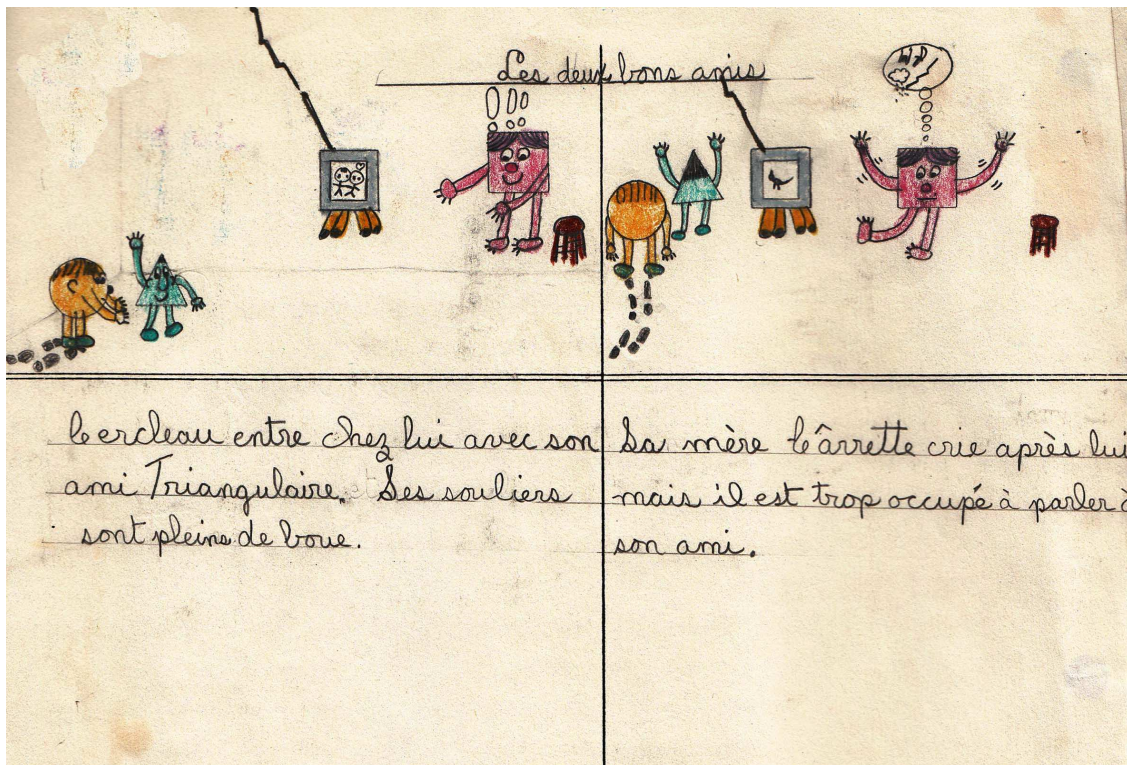 Les deux bons amis
Cercleau entre chez lui avec son
ami Triangulaire. Ses souliers
sont pleins de boue.
Sa mère Cârrette crie après lui
mais il est trop occupé à parler à
son ami.